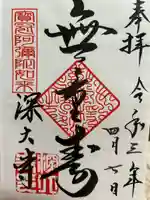 奉拝
令和三年
四月 日
無量壽
寶冠阿彌陀如来
深大寺